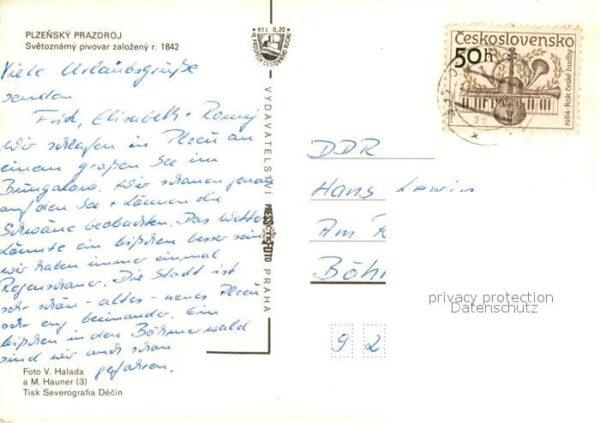 PLZEŇSKÝ PRAZDROJ
Světoznámý pivovar založený r. 1842
Viele Urlaubsgrüße
senden
Frid, Elisabeth + Ronny
Wir schlafen in Plzeň an
einem großen See im
Bungalow. Wir schauen genau
auf den See + können die
Schwäne beobachten. Das Wetter
könnte ein bißchen besser sein,
wir haben immer einmal
Regenschauer. Die Stadt ist
sehr schön - altes - neues Plzeň
sehr eng beinander. Ein
bißchen in den Böhmerwald
sind wir auch schon
gefahren.
Foto V. Halada
a M. Hauner (3)
Tisk Severografia Děčín
Kčs 0,20
VYDAVATELSTVÍ PRESSFOTO PRAHA
Československo
50h
1984 Rok české hudby
DDR
Hans Lewin
Am
Böh
92
privacy protection
Datenschutz